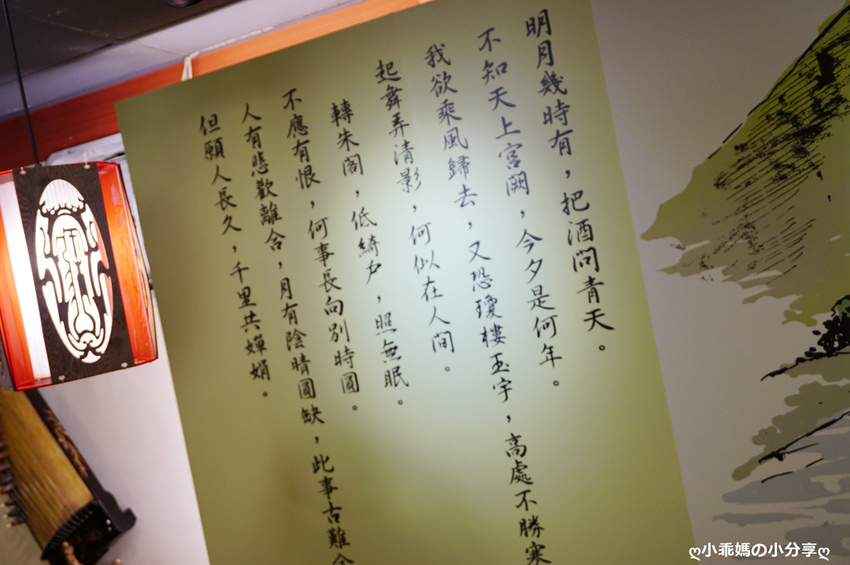 明月幾時有，把酒問青天。
不知天上宮闕，今夕是何年。
我欲乘風歸去，又恐瓊樓玉宇，高處不勝寒
起舞弄清影，何似在人間。
轉朱閣，低綺戶，照無眠。
不應有恨，何事長向別時圓。
人有悲歡離合，月有陰晴圓缺，此事古難全
但願人長久，千里共嬋娟。
ღ小乖媽の小分享ღ